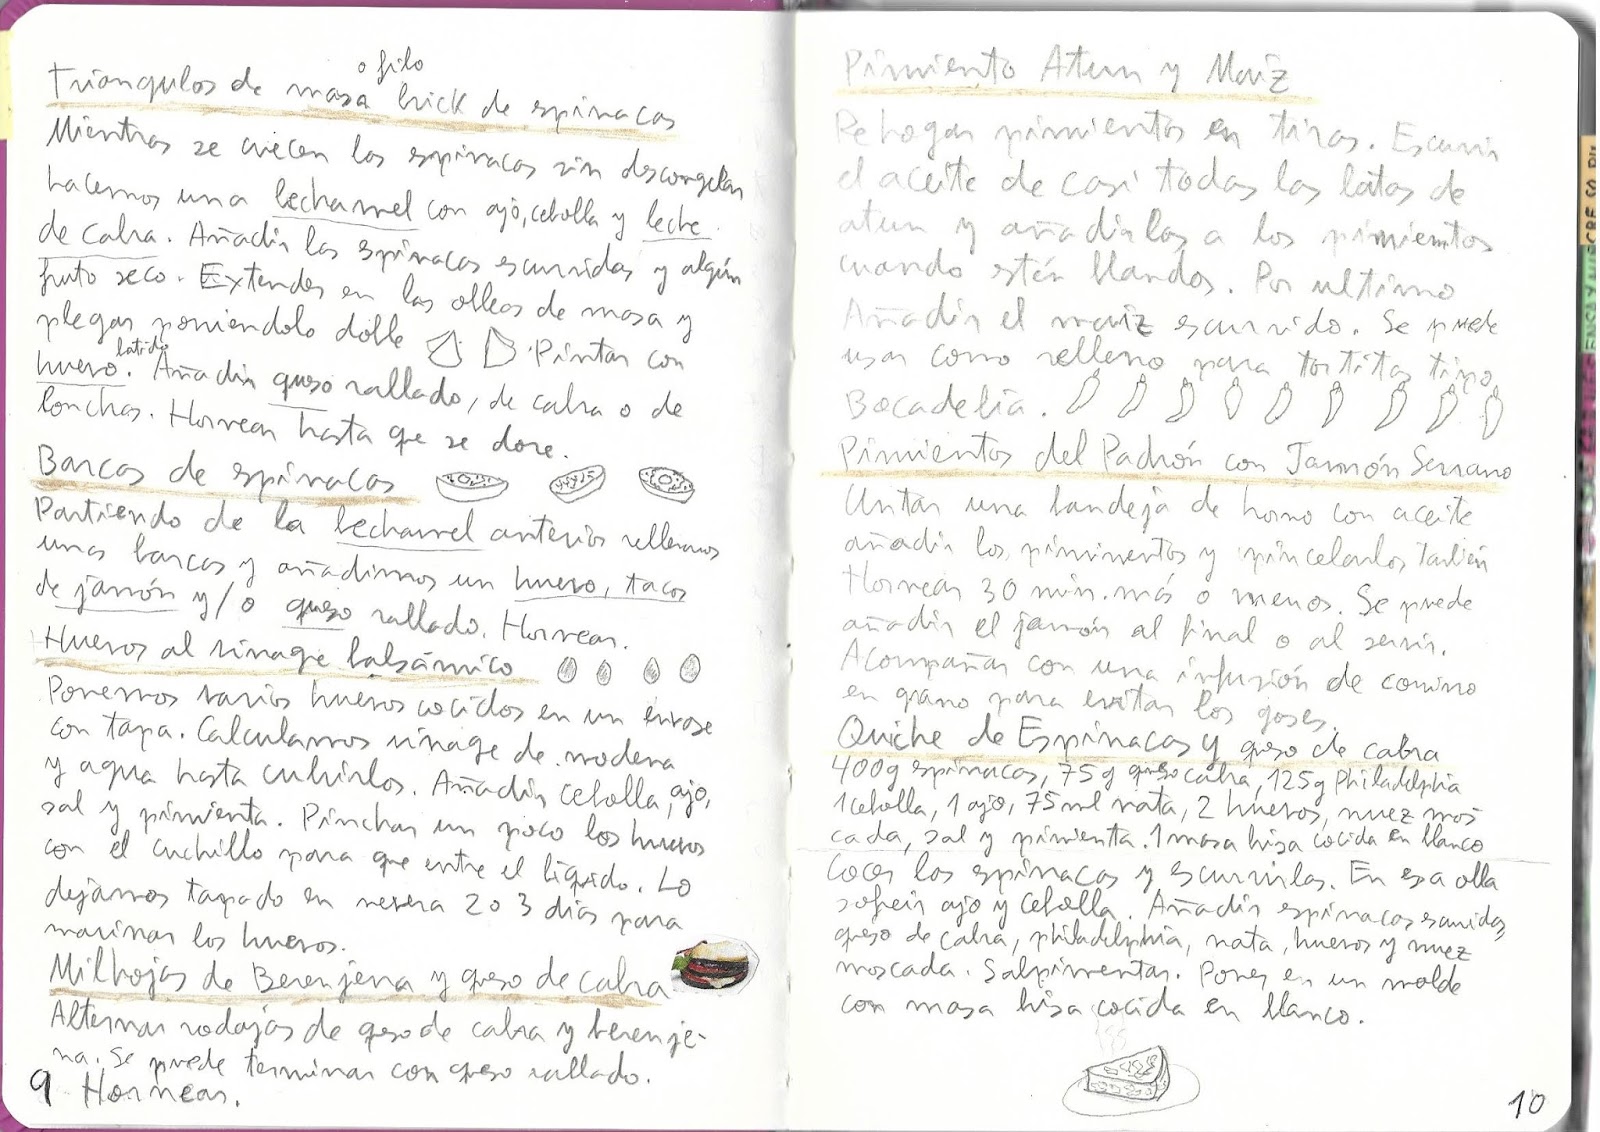 o filo
Triangulos de masa brick de espinacas
Mientras se cuecen las espinacas sin descongelar
hacemos una bechamel con ajo, cebolla y leche
de cabra. Añadir las espinacas escurridas y algún
fruto seco. Extender en las obleas de masa y
plegar poniendolo doble . Pintar con
batido
huevo. Añadir queso rallado, de cabra o de
lonchas. Hornear hasta que se dore.
Barcas de espinacas
Partiendo de la bechamel anterior rellenamos
unas barcas y añadimos un huevo, tacos
de jamón y/o queso rallado. Hornear.
Huevos al vinagre balsámico
Ponemos varios huevos cocidos en un envase
con tapa. Calculamos vinagre de modena
y agua hasta cubrirlos. Añadir cebolla, ajo,
sal y pimienta. Pinchar un poco los huevos
con el cuchillo para que entre el líquido. Lo
dejamos tapado en nevera 2 o 3 días para
marinar los huevos.
Milhojas de Berenjena y queso de cabra
Alternar rodajas de queso de cabra y berenje-
na. Se puede terminar con queso rallado.
Hornear.
9
Pimiento Atun y Maiz
Rehogar pimientos en tiras. Escurrir
el aceite de casi todas las latas de
atun y añadirlas a los pimientos
cuando estén blandos. Por ultimo
Añadir el maiz escurrido. Se puede
usar como relleno para tortitas tipo
Bocadelia.
Pimientos del Padrón con Jamón Serrano
Untar una bandeja de horno con aceite
añadir los pimientos y pincelarlos también
Hornear 30 min. más o menos. Se puede
añadir el jamón al final o al servir.
Acompañar con una infusión de comino
en grano para evitar los gases.
Quiche de Espinacas y queso de cabra
400g espinacas, 75g queso cabra, 125g Philadelphia
1 cebolla, 1 ajo, 75ml nata, 2 huevos, nuez mos
cada, sal y pimienta. 1 masa brisa cocida en blanco
Cocer las espinacas y escurrirlas. En esa olla
sofreir ajo y cebolla. Añadir espinacas escurridas,
queso de cabra, philadelphia, nata, huevos y nuez
moscada. Salpimentar. Poner en un molde
con masa brisa cocida en blanco.
10